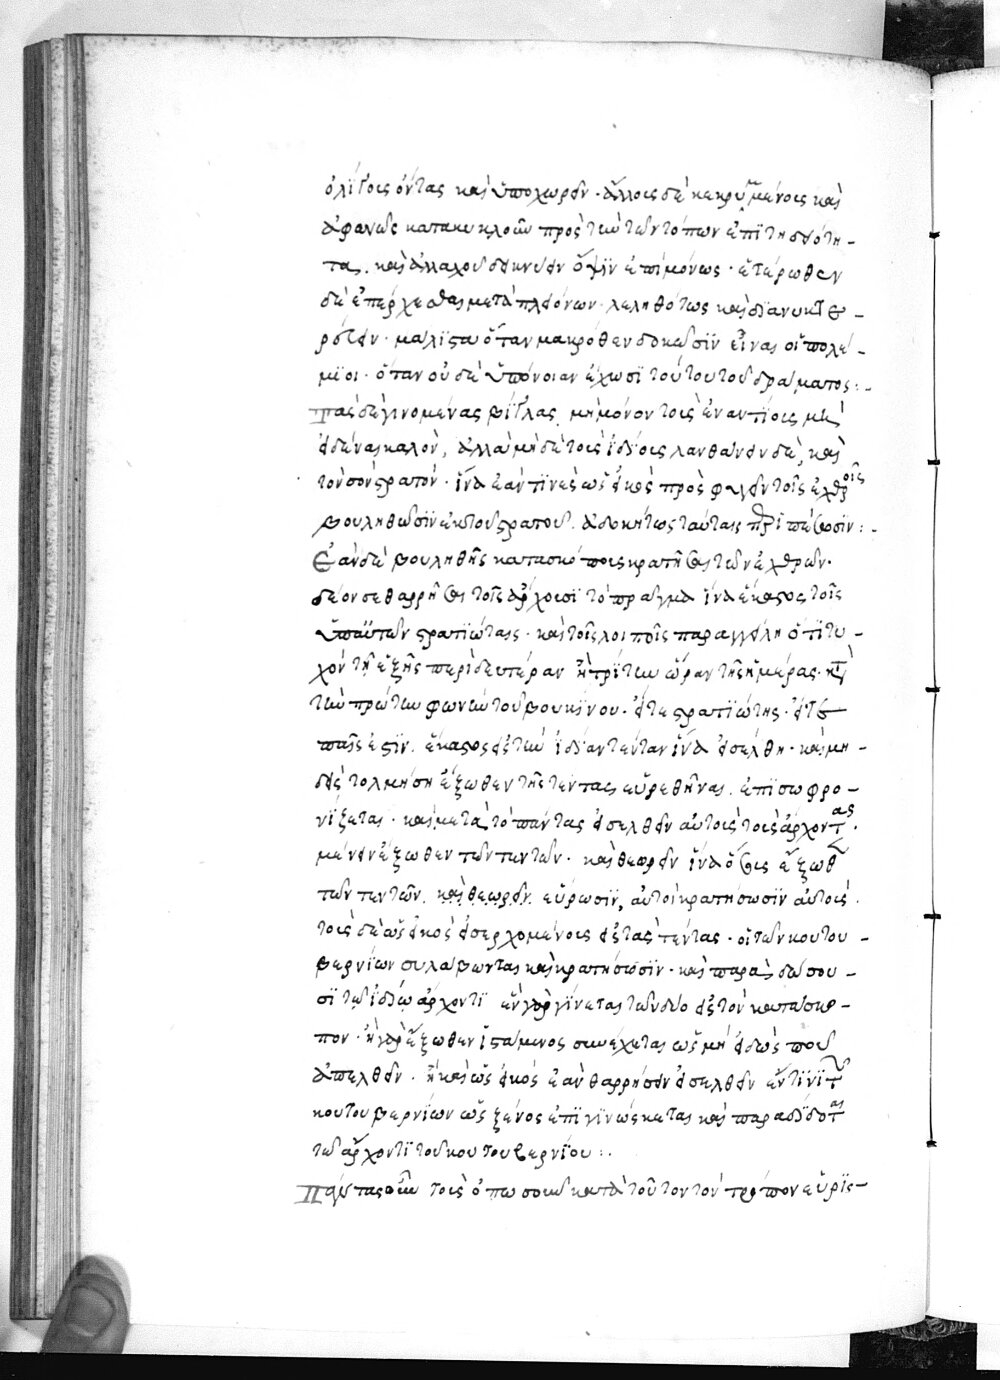 ὀλίγοις ὄντας καὶ ὑποχωρεῖν· ἄλλοις δὲ κεκρυμμένοις καὶ
ἀφανῶς κατακυκλοῦν πρὸς τὴν τῶν τόπων ἐπιτηδειότη-
τα. καὶ ἀλλαχοῦ δεικνύειν ὄψιν ἐπιμόνως· ἑτέρωθεν
δὲ ἐπέρχεσθαι μετὰ πλειόνων· λεληθότως καὶ διὰ νυκτε-
ρίδιν· μάλιστα ὅταν μακρόθεν δοκῶσιν εἶναι οἱ πολέ-
μιοι· ὅταν οὐδὲ ὑπόνοιαν ἔχωσι τούτου τοῦ δράματος:-
Τὰς δὲ γινομένας βίγλας μὴ μόνον τοῖς ἐναντίοις μὴ
εἰδέναι καλὸν, ἀλλὰ μηδὲ τοῖς ἰδίοις λανθάνειν δὲ, καὶ
τὸν σὸν στρατόν· ἵνα ἐάν τινες ὡς εἰκὸς προσφυγεῖν τοῖς ἐχθροῖς
βουληθῶσιν ἐκ τοῦ στρατοῦ. ἀδοκήτως ταύταις περιπέσωσιν:-
Ἐὰν δὲ βουληθῇς κατασκόποις κρατῆσαι τῶν ἐχθρῶν.
δέον σε θαρρῆσαι τοῖς ἄρχουσι τὸ πρᾶγμα ἵνα ἕκαστος τοῖς
ὑπ' αὐτῶν στρατιώταις· καὶ τοῖς λοιποῖς παραγγείλη ὅτι τυ-
χὸν τῇ ἑξῆς περὶ δευτέραν ἢ τρίτην ὥραν τῆς ἡμέρας· κατὰ
τὴν πρώτην φωνὴν τοῦ βουκίνου· εἴτε στρατιώτης· εἴτε
παῖς ἐστιν. ἕκαστος εἰς τὴν ἰδίαν τένταν ἵνα εἰσέλθη· καὶ μη-
δεὶς τολμήση ἔξωθεν τῆς τέντας εὑρεθῆναι. ἐπὶ σωφρο-
νίζεται· καὶ μετὰ τὸ πάντας εἰσελθεῖν αὐτοὺς τοὺς ἄρχοντας·
μένειν ἔξωθεν τῶν τεντῶν· καὶ θεωρεῖν ἵνα ὅσοις ἔξωθεν
τῶν τεντῶν. καὶ θεωρεῖν. εὕρωσιν, αὐτοὶ κρατήσωσιν αὐτοὺς·
τοὺς δὲ ὡς εἰκὸς εἰσερχομένοις εἰς τὰς τέντας· οἱ τῶν κουτου-
βερνίων συλαβῶνται καὶ κρατήσωσιν· καὶ παραδώσου-
σι τῶ ἰδίω ἄρχοντι ἓν γὰρ γίνεται τῶν δύο εἰς τὸν κατάσκο-
πον· ἢ γὰρ ἔξωθεν ἱστάμενος συνέχεται ὡς μὴ εἰδὼς ποῦ
ἀπελθεῖν. ἢ καὶ ὡς εἰκὸς ἐὰν θαρρήσειν εἰσελθεῖν ἔν τινι τῶν
κουτουβερνίων ὡς ξένος ἐπιγινώσκεται καὶ παραδίδοται
τῶ ἄρχοντι τοῦ κουτουβερνίου:.
Πάντας οὖν τοὺς ὁπωσοῦν κατὰ τοῦτον τὸν τρόπον εὑρισ-